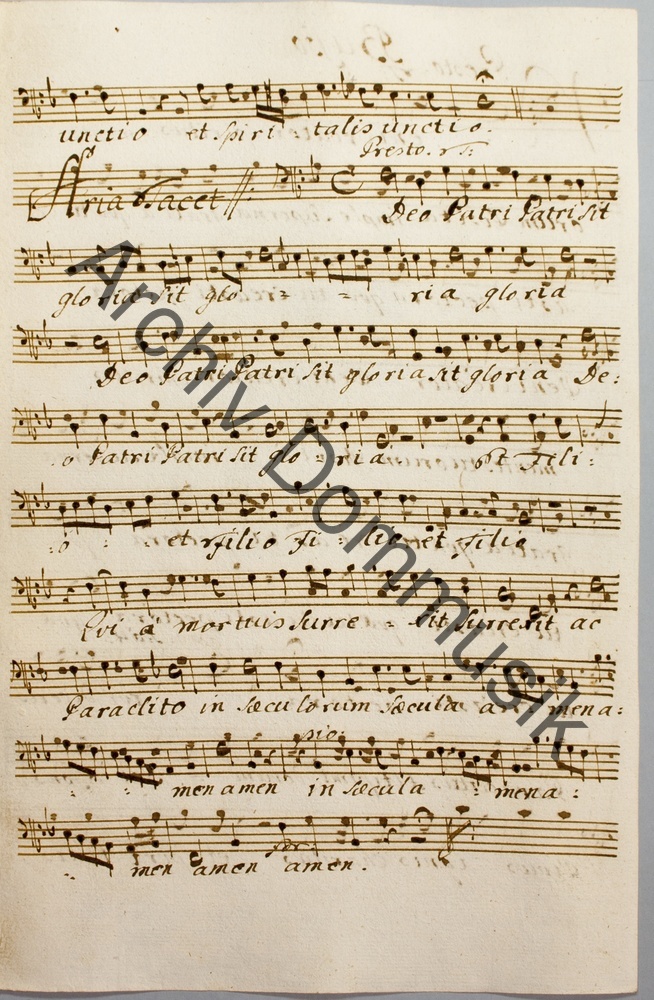 unctio et spiri - talis unctio.
Presto.
Aria tacet
Deo Patri Patri sit
gloria sit glo - - - ria gloria
Deo Patri Patri sit gloria sit gloria De:
o Patri Patri sit glo - ria et Fili:
:o - - et Filio Fi - lio et Filio
Qvi à mortuis surre - xit surrexit ac
Paraclito in sæculorum sæcula a - mena:
pio:
men amen in sæcula - mena:
for:
men amen amen.
Archiv Dommusik